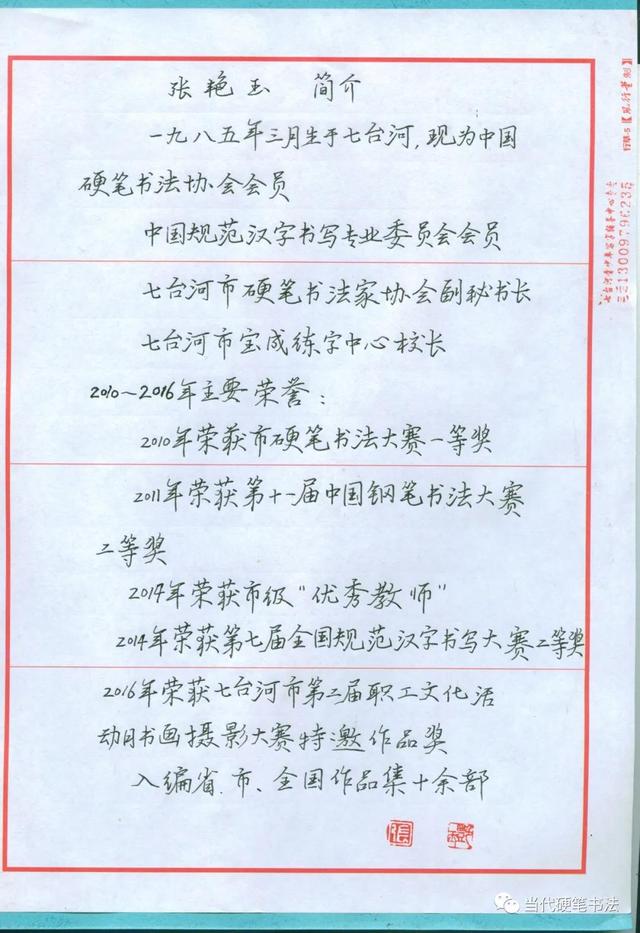 张艳玉 简介
一九八五年三月生于七台河,现为中国
硬笔书法协会会员
中国规范汉字书写专业委员会会员
七台河市硬笔书法家协会副秘书长
七台河市宝成练字中心校长
2010~2016年主要荣誉:
2010年荣获市硬笔书法大赛一等奖
2011年荣获第十一届中国钢笔书法大赛
二等奖
2014年荣获市级"优秀教师"
2014年荣获第七届全国规范汉字书写大赛二等奖
2016年荣获七台河市第二届职工文化活
动月书画摄影大赛特邀作品奖
入编省、市、全国作品集十余部
张
13009796235
当代硬笔书法